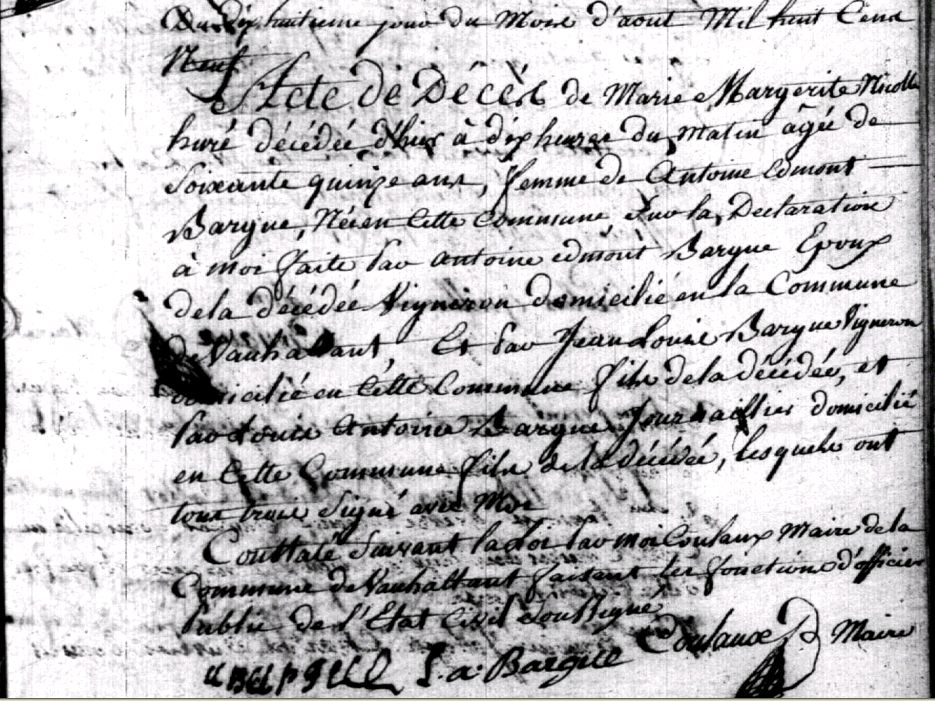 Du dix huitieme jour du Mois d'aout Mil huit Cent
Neuf
Acte de Décès de Marie Margerite Nicolle
huré décédée d'hier à dix heures du Matin âgée de
Soixante quinze ans, femme de Antoine Edmont
Bargue, Née en Cette Commune Sur la Declaration
à moi faite Par Antoine edmont Bargue Epoux
de la décédée Vigneron domicilié en la Commune
de Vauhallant, Et Par Jean Louis Bargue Vigneron
domicilié en Cette Commune fils de la décédée, et
Par Louis Antoine Bargue Journaillier domicilié
en Cette Commune fils de la décédée, lesquels ont
tous trois Signé avec Moi
Conttaté Suivant la Loi Par moi Coulaux Maire de la
Commune de Vauhallant faisant les fonctions d'officier
Public de l'Etat Civil Soussigné
L. a. Bargue Coulaux Maire